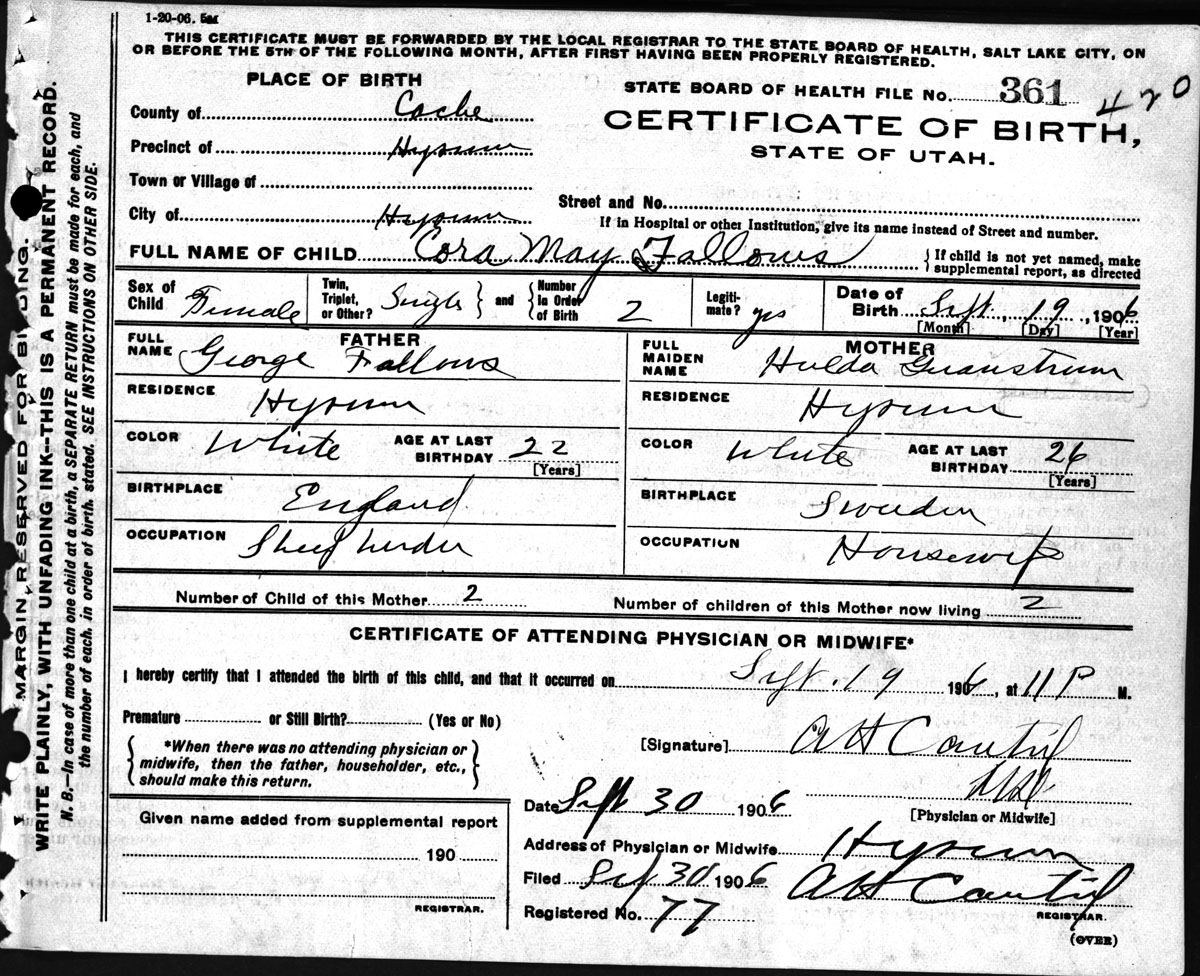 1-20-06. 5M
THIS CERTIFICATE MUST BE FORWARDED BY THE LOCAL REGISTRAR TO THE STATE BOARD OF HEALTH, SALT LAKE CITY, ON
OR BEFORE THE 5TH OF THE FOLLOWING MONTH, AFTER FIRST HAVING BEEN PROPERLY REGISTERED.
PLACE OF BIRTH
STATE BOARD OF HEALTH FILE No. 361 420
County of Cache
CERTIFICATE OF BIRTH,
STATE OF UTAH.
Precinct of Hyrum
Town or Village of
Street and No.
City of Hyrum
If in Hospital or other Institution, give its name instead of Street and number.
FULL NAME OF CHILD Cora May Fallows
{ If child is not yet named, make
supplemental report, as directed
Sex of Child Female
Twin, Triplet, or Other? Single } and { Number In Order of Birth 2
Legiti- mate? yes
Date of Birth Sept, 19, 1906
[Month] [Day] [Year]
FATHER
FULL NAME George Fallows
RESIDENCE Hyrum
COLOR White AGE AT LAST BIRTHDAY 22
[Years]
BIRTHPLACE England
OCCUPATION Sheep herder
MOTHER
FULL MAIDEN NAME Hulda
RESIDENCE Hyrum
COLOR White AGE AT LAST BIRTHDAY 26
[Years]
BIRTHPLACE Sweden
OCCUPATION Housewife
Number of Child of this Mother 2
Number of children of this Mother now living 2
CERTIFICATE OF ATTENDING PHYSICIAN OR MIDWIFE*
I hereby certify that I attended the birth of this child, and that it occurred on Sept. 19 1906, at 11 P M.
Premature or Still Birth? (Yes or No)
{ *When there was no attending physician or
midwife, then the father, householder, etc.,
should make this return. }
[Signature] A H
MD
[Physician or Midwife]
Date Sept 30 1906
Address of Physician or Midwife Hyrum
Filed Sept 30 1906 A H
REGISTRAR.
Registered No. 77
(OVER)
Given name added from supplemental report
190
REGISTRAR.
MARGIN RESERVED FOR BINDING.
WRITE PLAINLY, WITH UNFADING INK—THIS IS A PERMANENT RECORD.
N. B.—In case of more than one child at a birth, a SEPARATE RETURN must be made for each, and
the number of each, in order of birth, stated. SEE INSTRUCTIONS ON OTHER SIDE.